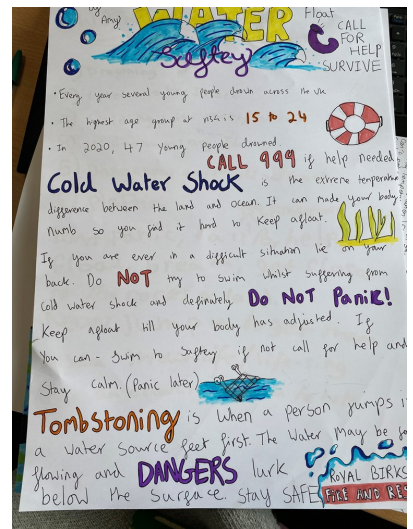 by Amy
WATER
Saftey
Float
CALL
FOR
HELP
SURVIVE
• Every year several young people drown across the UK
• The highest age group at risk is 15 to 24
• In 2020, 47 young people drowned
CALL 999 if help needed
Cold Water Shock is the extreme temperature
difference between the land and ocean. It can made your body
numb so you find it hard to keep afloat.
If you are ever in a difficult situation lie on your
back. Do NOT try to swim whilst suffering from
cold water shock and definately Do NOT Panic!
Keep afloat till your body has adjusted. If
you can - swim to saftey if not call for help and
Stay calm. (Panic later)
Tombstoning is when a person jumps i
a water source feet first. The water may be
flowing and DANGERS lurk
below the surface. Stay SAFE
ROYAL BIRKS
FIRE AND RES